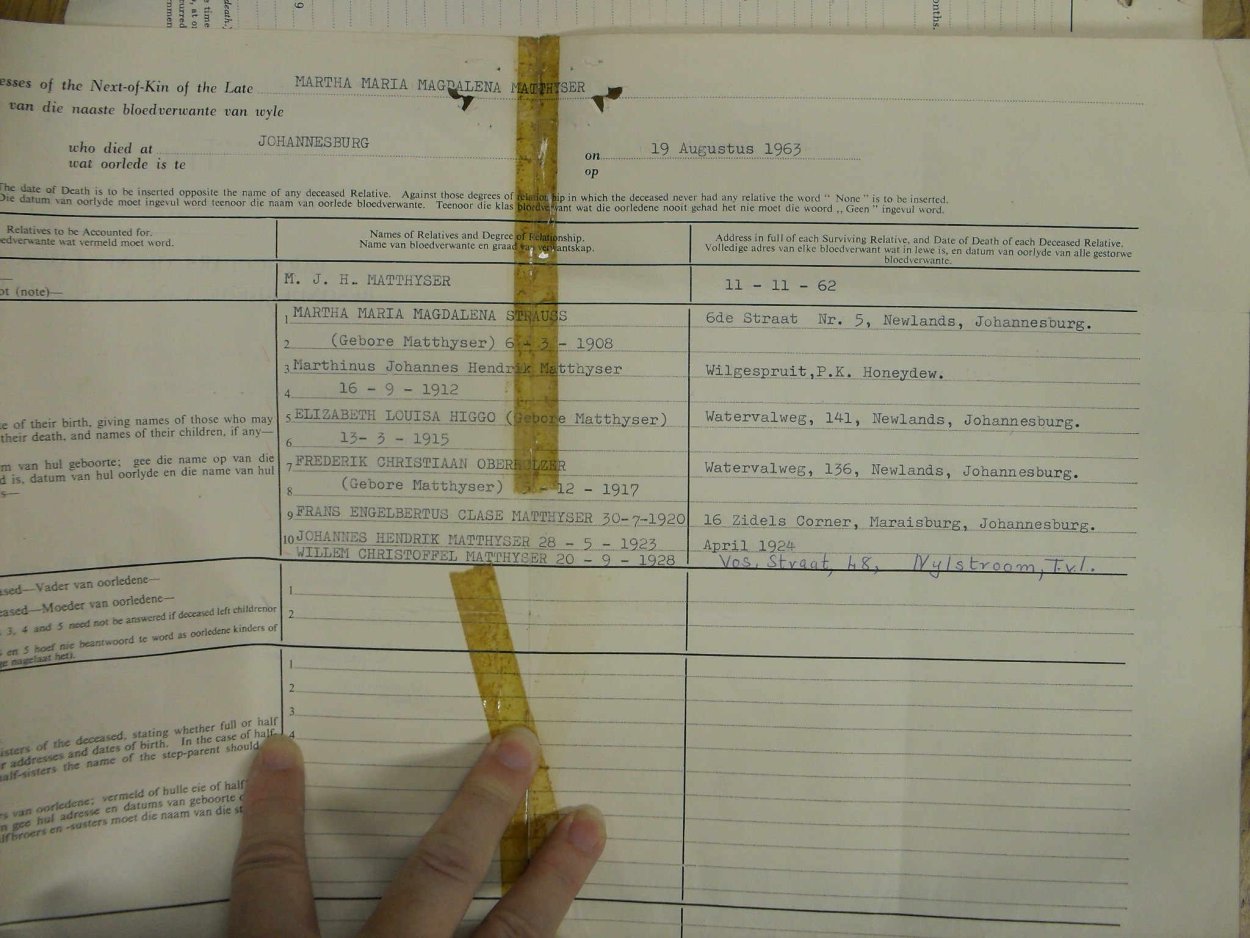 esses of the Next-of-Kin of the Late MARTHA MARIA MAGDALENA MATTHYSER
van die naaste bloedverwante van wyle
who died at JOHANNESBURG on 19 Augustus 1963
wat oorlede is te op
The date of Death is to be inserted opposite the name of any deceased Relative. Against those degrees of relationship in which the deceased never had any relative the word " None " is to be inserted.
Die datum van oorlyde moet ingevul word teenoor die naam van oorlede bloedverwante. Teenoor die klas bloedverwant wat die oorledene nooit gehad het nie moet die woord „ Geen " ingevul word.
Relatives to be Accounted for.
edverwante wat vermeld moet word.
Names of Relatives and Degree of Relationship.
Name van bloedverwante en graad van verwantskap.
Address in full of each Surviving Relative, and Date of Death of each Deceased Relative.
Volledige adres van elke bloedverwant wat in lewe is, en datum van oorlyde van alle gestorwe
bloedverwante.
ot (note)—
M. J. H. MATTHYSER 11 - 11 - 62
1 MARTHA MARIA MAGDALENA STRAUSS 6de Straat Nr. 5, Newlands, Johannesburg.
2 (Gebore Matthyser) 6 - 3 - 1908
3 Marthinus Johannes Hendrik Matthyser Wilgespruit,P.K. Honeydew.
4 16 - 9 - 1912
5 ELIZABETH LOUISA HIGGO (Gebore Matthyser) Watervalweg, 141, Newlands, Johannesburg.
6 13- 3 - 1915
7 FREDERIK CHRISTIAAN OBERHOLZER Watervalweg, 136, Newlands, Johannesburg.
8 (Gebore Matthyser) - 12 - 1917
9 FRANS ENGELBERTUS CLASE MATTHYSER 30-7-1920 16 Zidels Corner, Maraisburg, Johannesburg.
10 JOHANNES HENDRIK MATTHYSER 28 - 5 - 1923 April 1924
WILLEM CHRISTOFFEL MATTHYSER 20 - 9 - 1928 Vos, Straat, 48, Nylstroom, T.v.l.
e of their birth, giving names of those who may
their death, and names of their children, if any—
m van hul geboorte; gee die name op van die
d is, datum van hul oorlyde en die name van hul
s—
ased—Vader van oorledene—
eased—Moeder van oorledene—
3, 4 and 5 need not be answered if deceased left childrenor
en 5 hoef nie beantwoord te word as oorledene kinders of
ge nagelaat het).
1
2
1
2
3
4
isters of the deceased, stating whether full or half
r addresses and dates of birth. In the case of half-
half-sisters the name of the step-parent should
rs van oorledene; vermeld of hulle eie of half
n gee hul adresse en datums van geboorte
lfbroers en -susters moet die naam van die